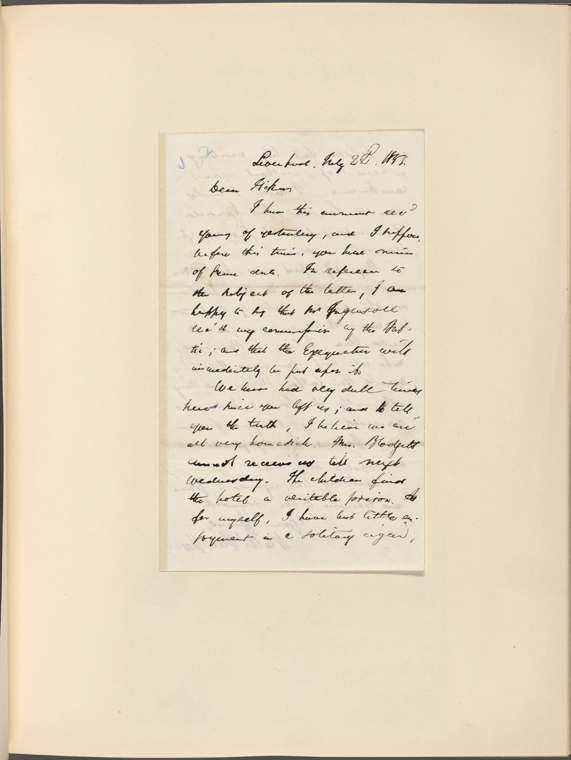 Liverpool. July 22d. 1853.
Dear Ticknor
I have this moment rec'd
yours of yesterday, and I suppose,
before this time, you have mine
of same date. In reference to
the subject of the latter, I am
happy to say that Mr Ingersoll
rec'd my commission by the Bal-
tic; and that the Exequatur will
immediately be put upon it.
We have had very dull times
here since you left us; and to tell
you the truth, I believe we are
all very homesick. Mrs. Blodgett
cannot receive us till next
Wednesday. The children find
the hotel a veritable prison. As
for myself, I have but little en-
joyment in a solitary cigar,